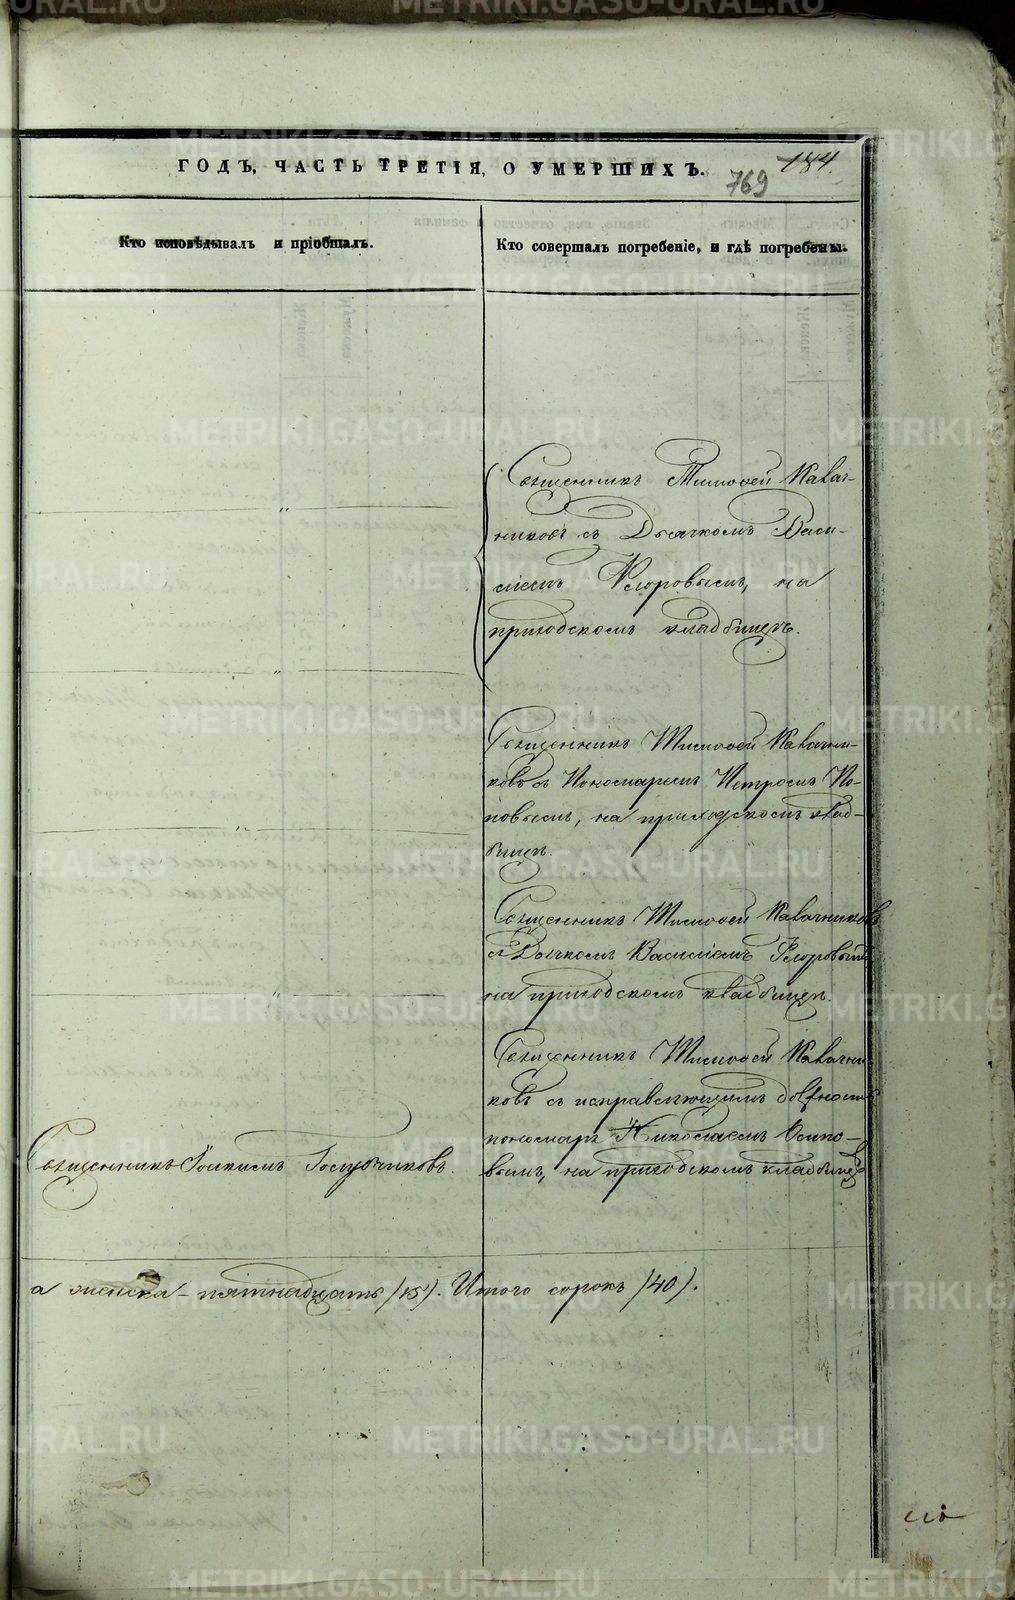 ГОДЪ, ЧАСТЬ ТРЕТІЯ, О УМЕРШИХЪ.
769 184.
Кто исповѣдывалъ и пріобщалъ.
Кто совершалъ погребеніе, и гдѣ погребены.
Священникъ Тимофей Калач-
никовъ съ Дьячкомъ Васи-
ліемъ Флоровымъ, на
приходскомъ кладбищѣ.
Священникъ Тимофей Калачни-
ковъ съ Пономаремъ Петромъ По-
повымъ, на приходскомъ клад-
бищѣ.
Священникъ Тимофей Калачниковъ
съ Дьячкомъ Василіемъ Флоровымъ
на приходскомъ кладбищѣ.
Священникъ Тимофей Калачни-
ковъ съ исправляющимъ должность
пономаря Николаемъ Осипо-
вымъ, на приходскомъ кладбищѣ
Священникъ Іоакимъ
а женска - пятнадцать (15). Итого сорокъ (40).
METRIKI.GASO-URAL.RU